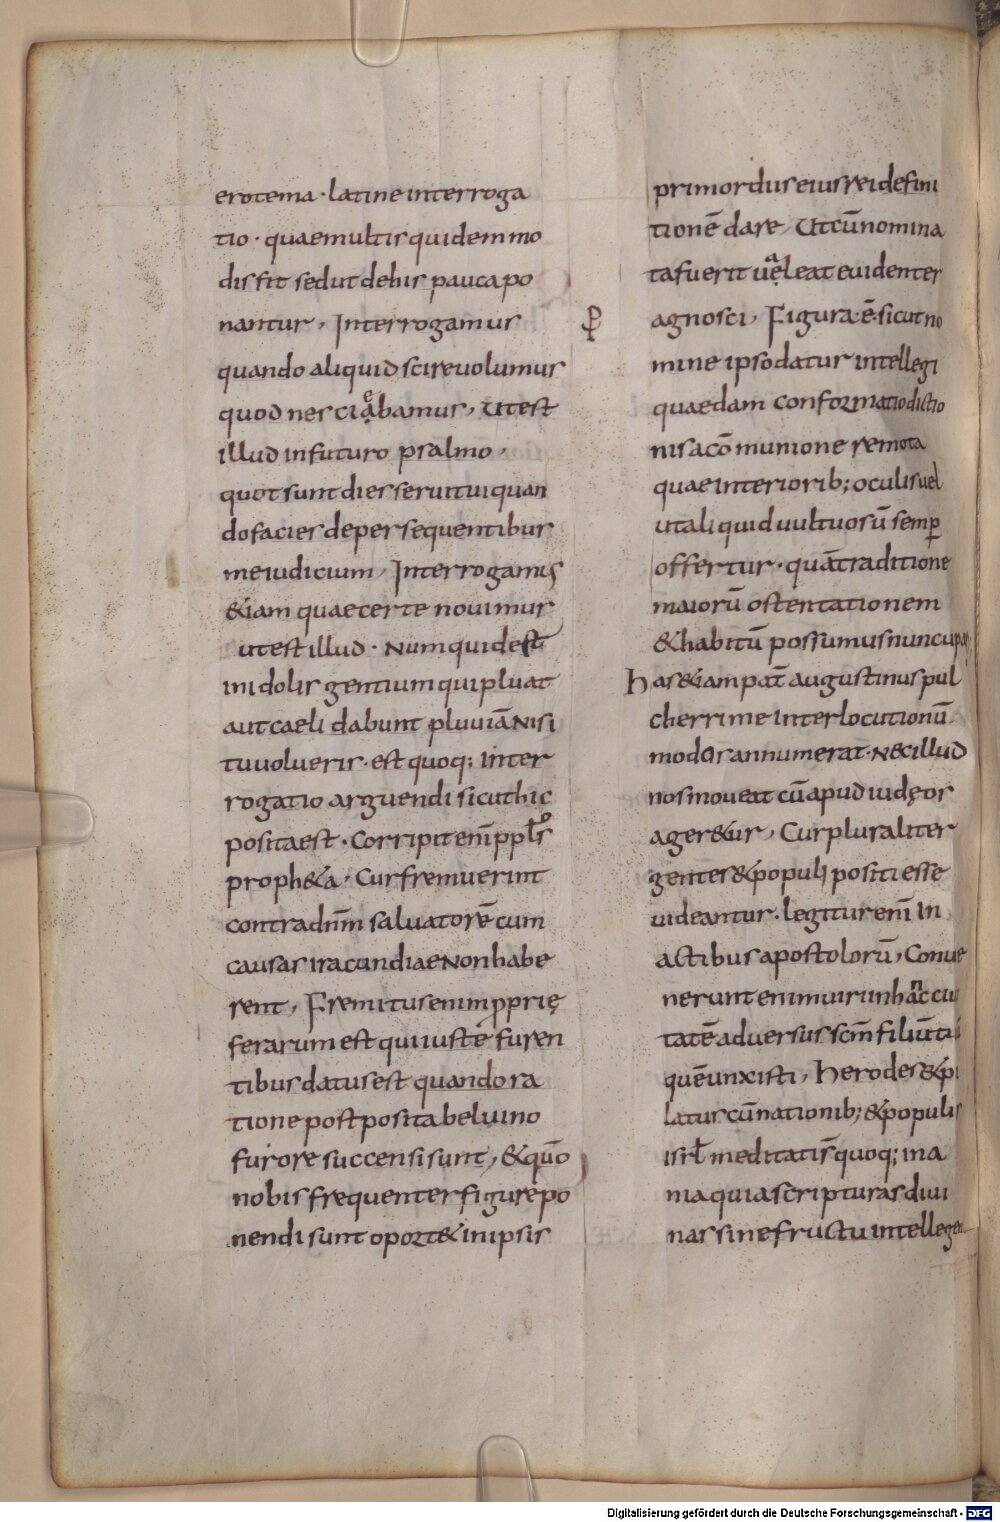 erotema · latine interroga
tio · quae multis quidem mo
dis fit sed ut de his pauca po
nantur, Interrogamus
quando aliquid scire uolumus
quod nesciebamus, Ut est
illud in futuro psalmo,
quot sunt dies serui tui quan
do facies de persequentibus
me iudicium, Interrogamus
&iam quae certe nouimus
ut est illud · Numquid est
in idolis gentium qui pluat
aut caeli dabunt pluuiā Nisi
tu uolueris · est quoq; inter
rogatio arguendi sicut hic
posita est · Corripit enī ppl̄s
proph&a · Cur fremuerunt
contra dnm̄ saluatorē cum
causas iracundiae Non habe
rent, Fremitus enim pprię
ferarum est qui iuste furen
tibus datus est quando ra
tione postposita beluino
furore succensi sunt, & quō
nobis frequenter figurę po
nendi sunt oport& in ipsis
ꝑ
primordiis eius rei defini
tionē dare, Ut cū nomina
ta fuerit ualeat euidenter
agnosci, Figura ē · sicut no
mine ipso datur intellegi
quaedam conformatio dictio
nis a cōmunione remota
quae interiorib; oculis uel
ut aliquid uultuosū semꝑ
offertur · quā traditione
maiorū ostentationem
& habitū possumus nuncupare
has &iam pat̄ augustinus pul
cherrime interlocutionū
modos annumerat · Nec illud
nos moueat cū apud iudęos
ager&ur, Cur pluraliter
gentes & populi positi esse
uideantur · legitur enī in
actibus apostolorū, Conue
nerunt enim uir in hac ciui
tatē aduersus scm̄ filiū tuū
quē unxisti, Herodes & pi
latus cū nationib; & populis
isrl̄ meditatis̄ quoq; ina
nia quia scripturas diui
nas sine fructu intellege
Digitalisierung gefördert durch die Deutsche Forschungsgemeinschaft - DFG